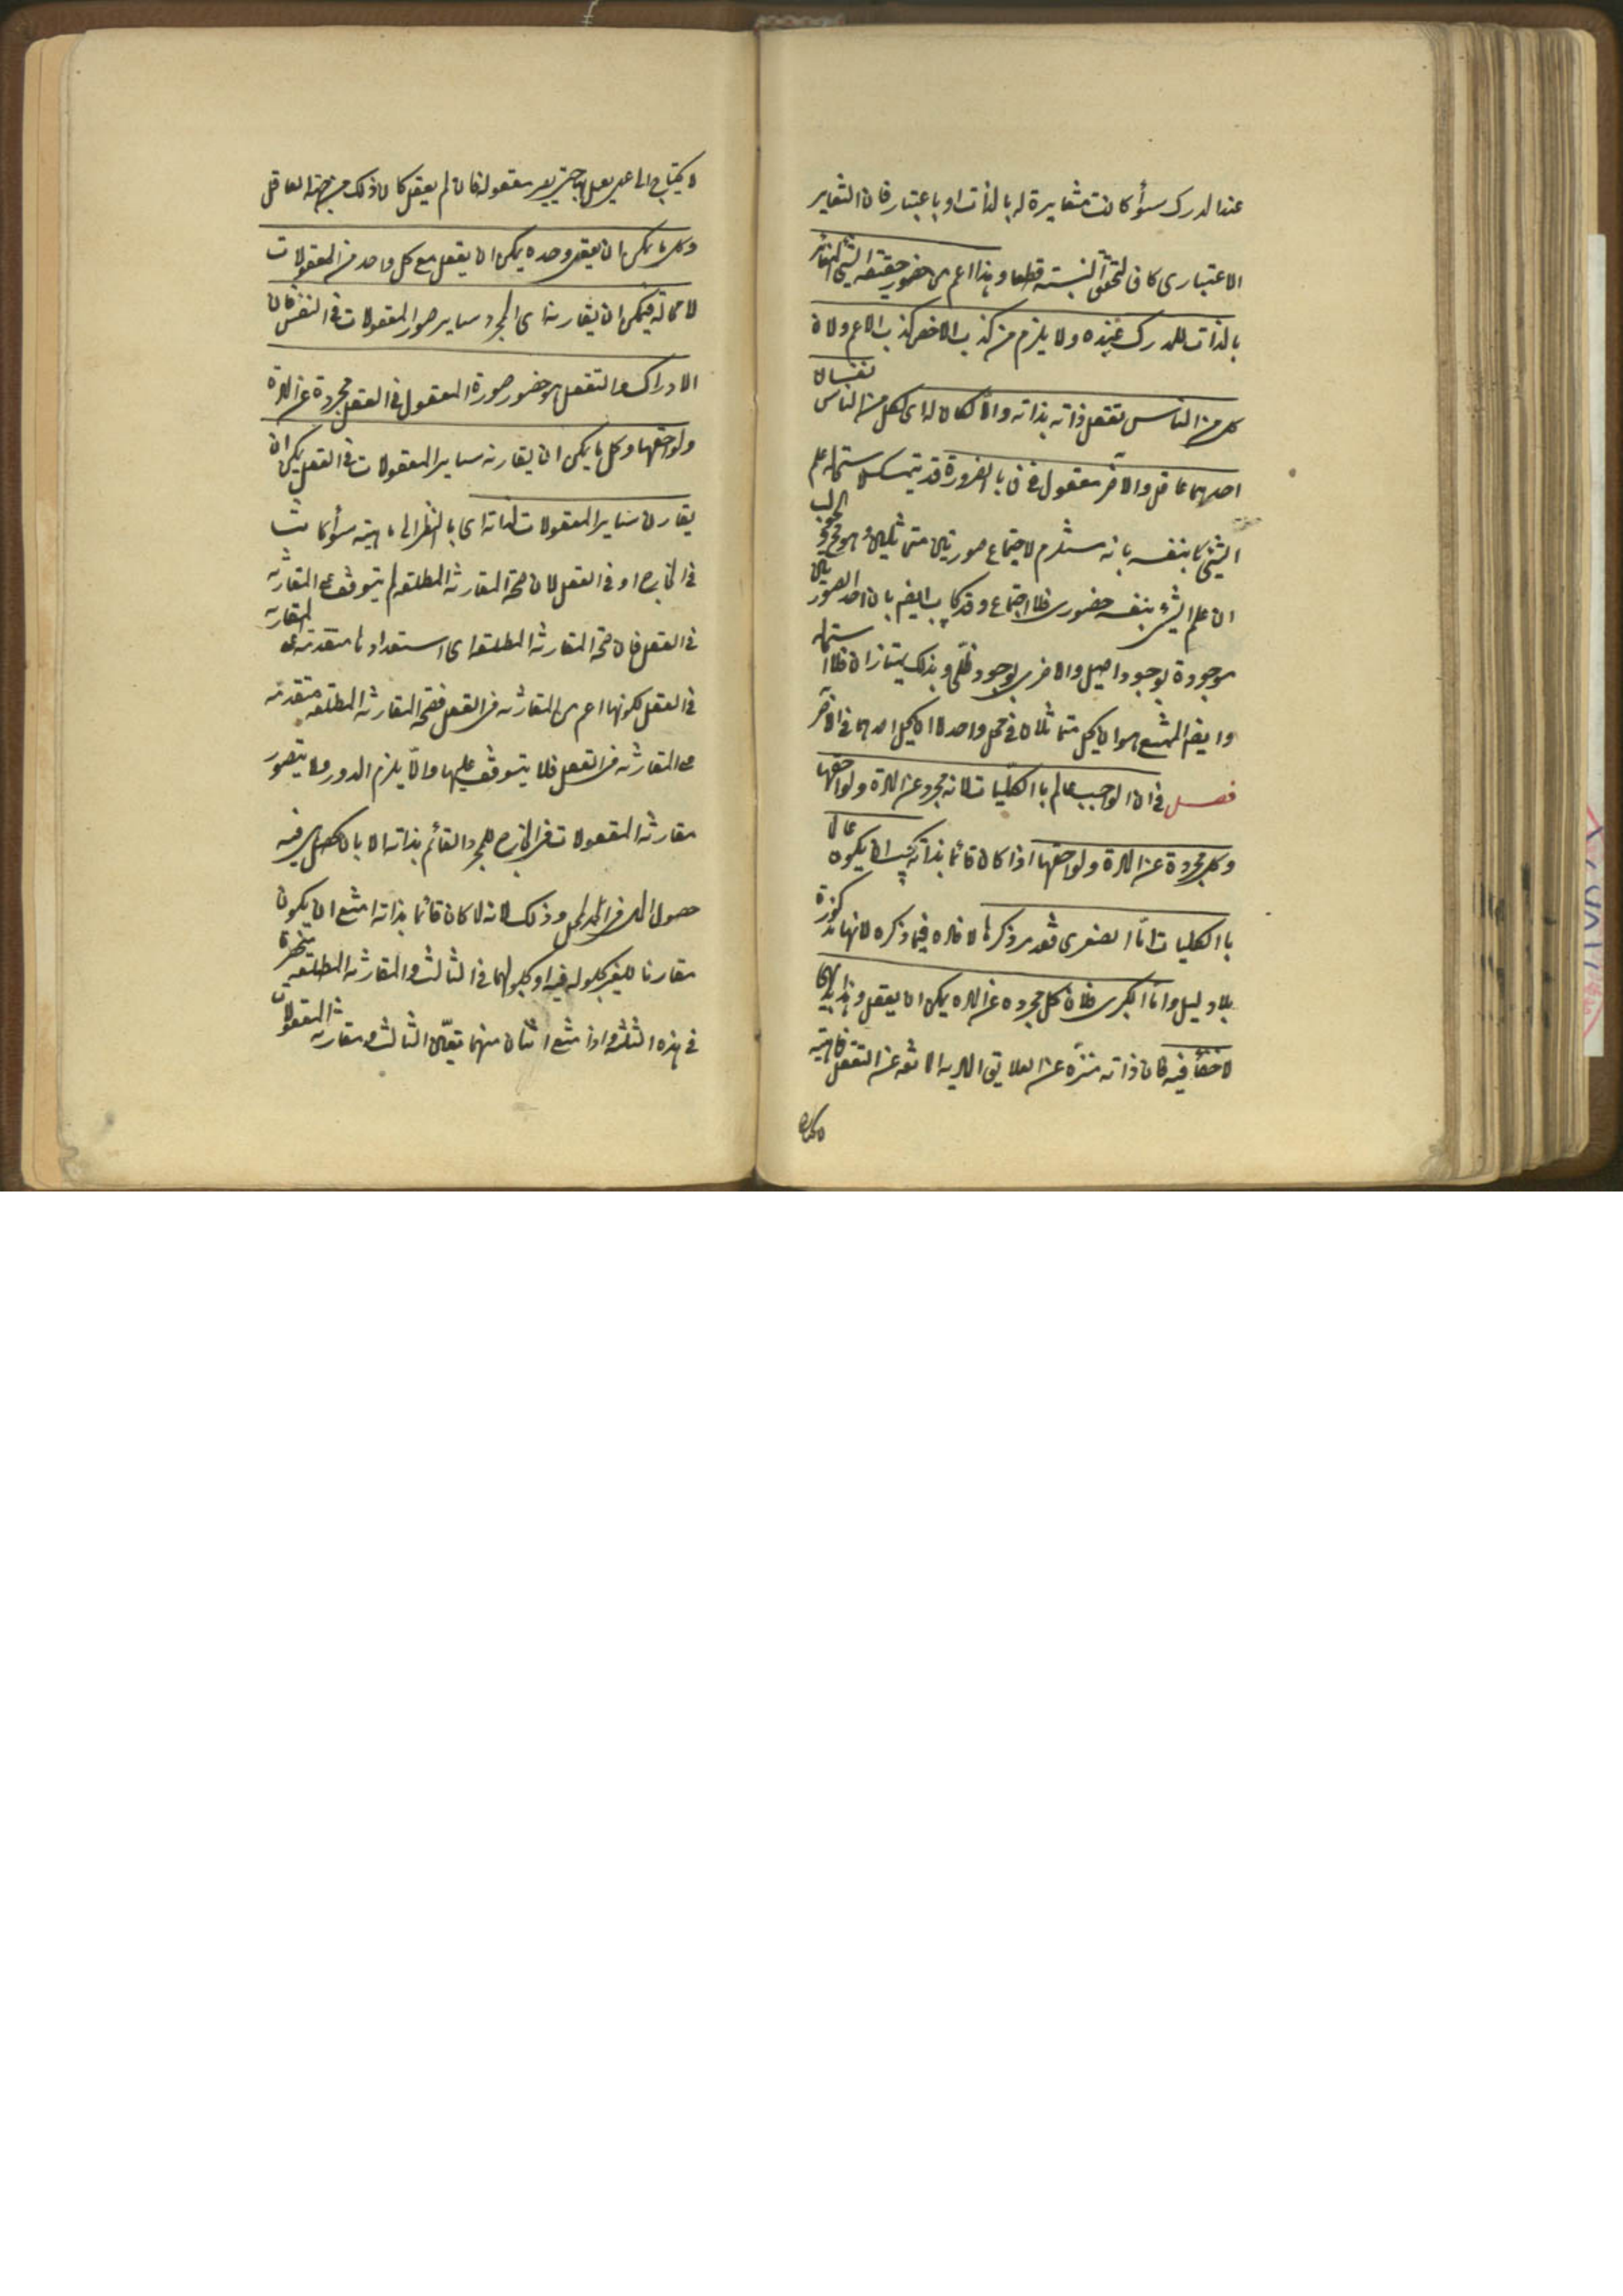 عند المدرك سوأ كانت مغايرة له بالذات او باعتبار فان التغاير
الاعتبارى كاف لتحقق النسبة قطعا وهذا اعم من حضور حقيقة الشئ المغاير
بالذات للمدرك عنده ولا يلزم من كذب الاخص كذب الاعم ولان
كل من الناس تعقل ذاته بذاته والا لكان له اى لكل من الناس نفسان
احدهما عاقل والآخر معقول هف بالضرورة قد يتمسك لاستحالة علم
الشئ بنفسه بانه مستلزم لاجتماع صورتين متماثلين وهو محال والجواب
ان علم الشئ بنفسه حضورى فلا اجتماع وقد يجاب ايضا بان احد الصورتين
موجودة بوجود اصيل والاخرى بوجود ظلى وبذلك يمتازان فلا استحالة
وايضا الممتنع هو ان يحل متماثلان فى محل واحد لا ان يحل احدهما فى الآخر
فصل فى ان الواجب عالم بالكليات لانه مجرد عن المادة ولواحقها
وكل مجردة عن المادة ولواحقها اذا كان قائما بذاته يجب ان يكون عالما
بالكليات اما الصغرى فقد مر ذكرها لا فائدة فيما ذكره لانها مذكورة
بلا دليل واما الكبرى فلان كل مجرده عن المادة يمكن ان يعقل وهذا بديهى
لا خفأ فيه فان ذاته منزه عن العلايق المادية المانعة عن التعقل فماهيته
لا يحتاج الى عمل يعمل بها حتى يصير معقولة فان لم يعقل كان ذلك من جهة العاقل
وكل ما يمكن ان يعقل وحده يمكن ان يعقل مع كل واحد من المعقولات
لا محالة فيمكن ان يقارنه اى المجرد ساير صور المعقولات فى النفس فان
الادراك والتعقل هو حضور صورة المعقول فى العقل مجردة عن المادة
ولواحقها وكل ما يمكن ان يقارنه ساير المعقولات فى العقل يمكن ان
يقارن ساير المعقولات لذاته اى بالنظر الى ماهيته سوأ كانت
فى الخارج او فى العقل لان صحة المقارنة المطلقة لم يتوقف على المقارنة
فى العقل فان صحة المقارنة المطلقة اى استعدادها متقدمة على المقارنة
فى العقل لكونها اعم من المقارنة فى العقل فصحة المقارنة المطلقة متقدمة
على المقارنة فى العقل فلا يتوقف عليها والا يلزم الدور ولا يتصور
مقارنة المعقولات فى الخارج للمجرد القائم بذاته الا بان يحصل هى فيه
حصول الحال فى المحل وذلك لانه لما كان قائما بذاته امتنع ان يكون
مقارنا للغير بحلوله فيه او بحلولهما فى الثالث والمقارنة المطلقة منحصرة
فى هذه الثلثة واذا امتنع اثنان منهما تعين الثالث ومقارنة المعقولات